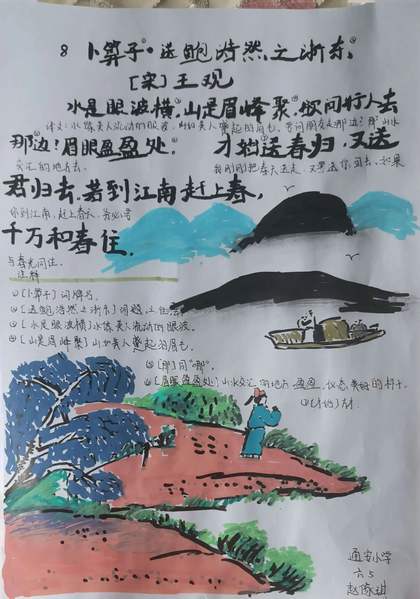 8 卜算子·送鲍浩然之浙东
[宋]王观
水是眼波横,山是眉峰聚。欲问行人去
译文:水像美人流动的眼波,山如美人蹙起的眉毛。要问朋友走那边?那山水
那边?眉眼盈盈处。才始送春归,又送
交汇的地方去。 我刚刚把春天送走,又要送你回去,如果
君归去。若到江南赶上春,
你到江南,赶上春天,
千万和春住。
与春光同住。
注释
①〔卜算子〕词牌名。
②〔送鲍浩然之浙东〕
③〔水是眼波横〕水像美人流动的眼波。
④〔山是眉峰聚〕山如美人蹙起的眉毛。
⑤〔那〕同“哪”。
⑥〔眉眼盈盈处〕山水交汇的地方 盈盈,仪态美好的样子。
⑦〔才始〕方才
通安小学
六5